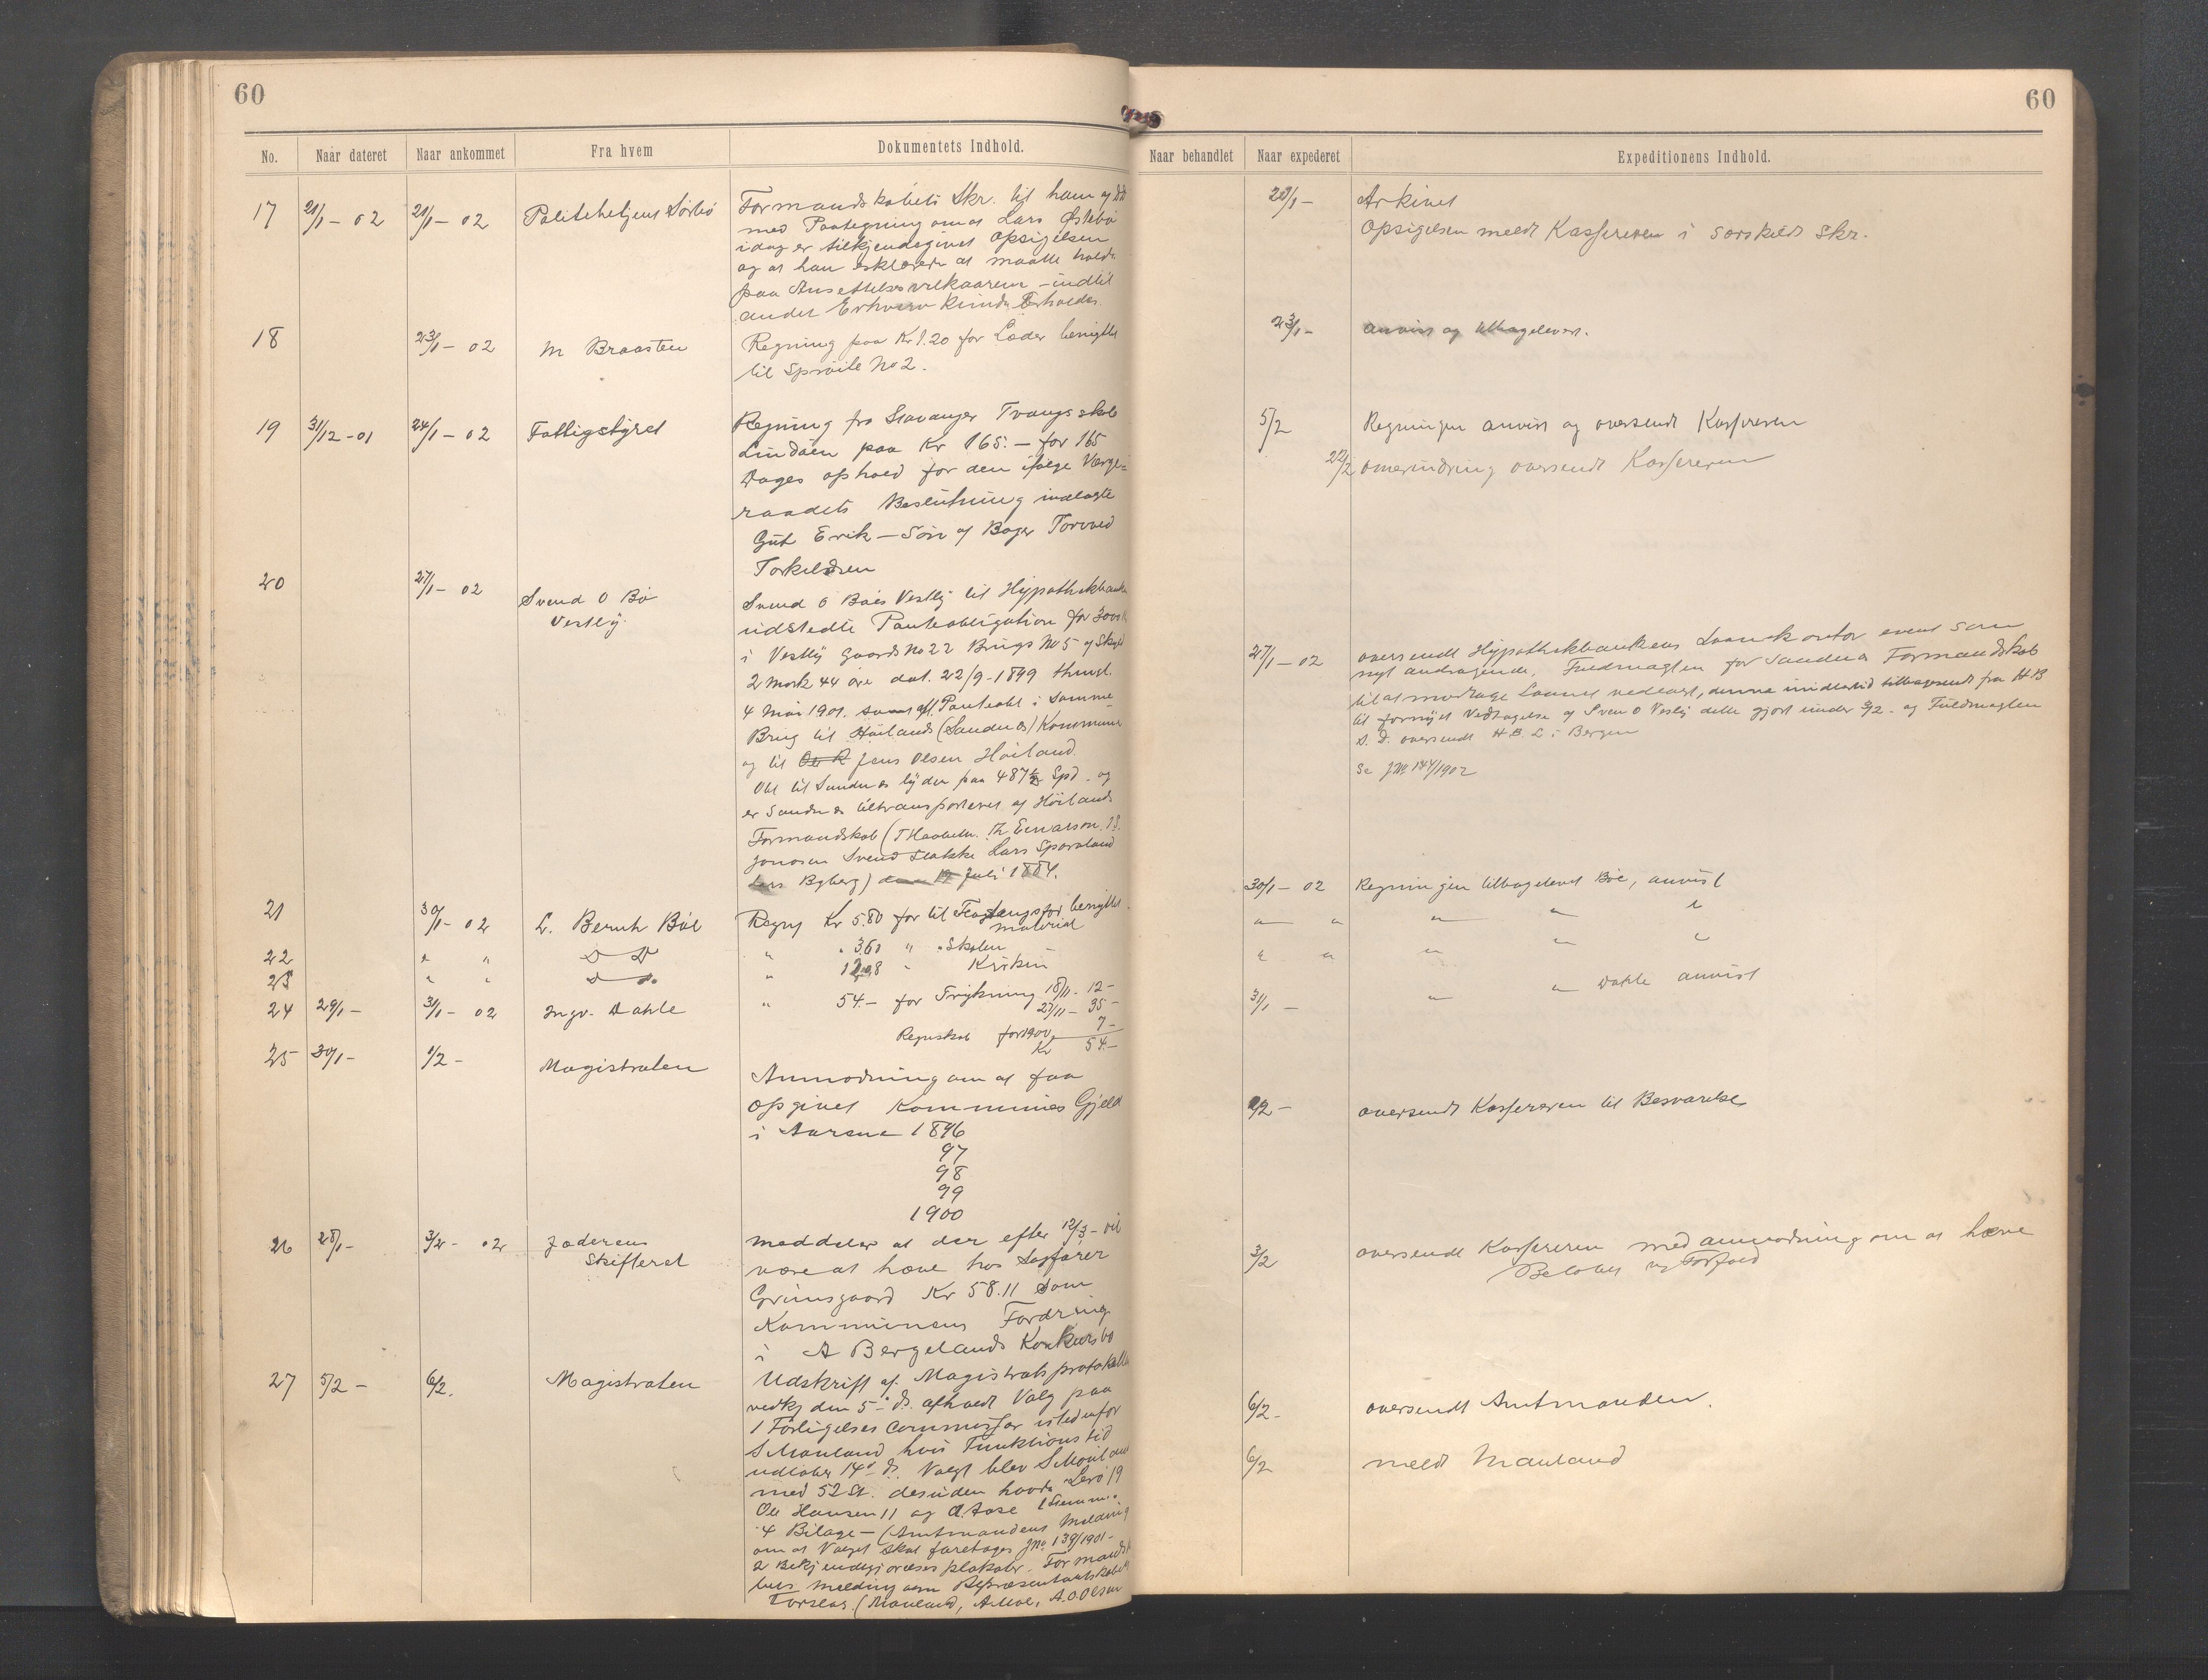 60
No. Naar dateret Naar ankommet Fra hvem Dokumentets Indhold.
17 21/1 - 02 21/1 - 02 Politibetjent Sørbö Formandskabets Skr. til ham af
med Paategning om at Lars
idag er tilkjendegivet Opsigelsen
og at han erklærer at maatte holde
paa Ansettelsesvilkaarene - indtil
andet Erhverv kunde Erholdes.
18 23/1 - 02 M Braasten Regning paa Kr 1.20 for Læder benyttet
til Sprøite No 2.
19 31/12 - 01 24/1 - 02 Fattigstyret Regning fra Stavanger Tvangsskole
Lindøen paa Kr 165.- for 165
Dages ophold for den ifølge Værge=
raadets Beslutning indlagte
Gut Erik - Søn af Bager Torvald
Torkeldsen
20 27/1 - 02 Svend O Bö
Vestly
Svend O Böes Vestly til Hypothekbanken
udstedte Panteobligation for
i Vestly Gaards No 22 Brugs No 5 af Skyld
2 Mark 44 øre dat. 22/9-1899 thingl.
4 Mai 1901. samt Panteobl i samme
Brug til Høilands (Sandnes) Kommune
og til Jens Olsen Høiland.
Obl til Sandnes lyder paa 487½ Spd. og
er Sandnes tiltransporteret af Høilands
Formandskab (T Haabeth.
Jonasen Svend Lars
Lars Bgberg) Juli 1884.
21 30/1 - 02 L. Bernh Böe Regng Kr 5.80 for til benyttet
material
22 " " D D " " 3.60 " " Skolen
23 " " D D. " " Kirken
24 29/1 - 31/1 - 02 Ingv. Dahle " 54.- for Trykning 18/11 - 12-
27/11 - 35-
Regnskab for 1900 7-
Kr 54.-
25 30/1 - 1/2 - Magistraten
Anmodning om at faa
opgivet Kommunes Gjeld
i Aarene 1896
97
98
99
1900
26 28/1 - 3/2 - 02 Jæderens
Skifteret
meddeler at der efter 12/3 - vil
være at hæve hos Sagfører
Grimsgaard Kr 58.11 som
Kommunens Fordring
i A Bergelands Konkursbo
27 5/2 - 6/2. Magistraten Udskrift af Magistratsprotokollen
vedkj den 5- ds. afholdt Valg paa
1 Forligelses Commissær istedenfor
S Mauland hvis Funktionstid
udløber 14de ds. Valgt blev S Mauland
med 52 St. desuden havde 19
Ole Hansen 11 og A. Aase 1 Stemme.
4 Bilage - (Amtmandens Melding
om at Valget skal foretages JNo 139/1901-
2 Bekjendtgjørelses plakater. Formandska
bets melding om Repræsentantskabets
Forslag. (Mauland, A Moe, A.O. Olsen
60
Naar behandlet Naar expederet Expeditionens Indhold.
Arkivet
Opsigelsen meldt Kassereren i særskildt Skr.
23/1 - anvist og tilbageleveret.
5/2 Regningen anvist og oversendt Kassereren
22/2 omerindring oversendt Kassereren
27/1 - 02 oversendt Hypothekbankens Laanekontor event som
nyt andragende. Fuldmagten for Sandnes Formandskab
til at modtage Laanet vedlagt, denne imidlertid tilbagesendt fra H.B
til fornyet Vedtagelse af Sven O Vestly dette gjort under 3/2 - og Fuldmagten
S. D. oversendt H.B. L i Bergen
Se JNo 144/1902
30/1 - 02 Regningen tilbagelevert Böe, anvist
" " " " "
" " " " "
31/1 - " " Dahle anvist
1/2 - oversendt Kassereren til Besvarelse
3/2 oversendt Kassereren med anmodning om at hæve
Beløbet ved Forfald
6/2 - oversendt Amtmanden.
6/2 meldt Mauland